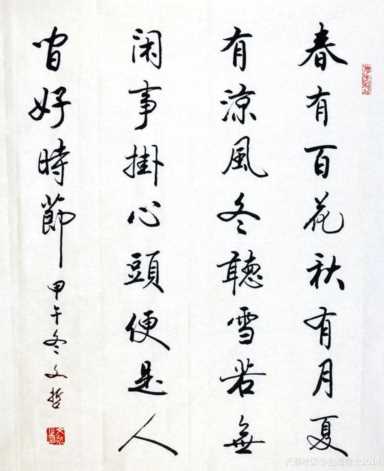 春有百花秋有月夏
有涼風冬聽雪若無
闲事掛心頭便是人
间好時節
甲午冬文哲